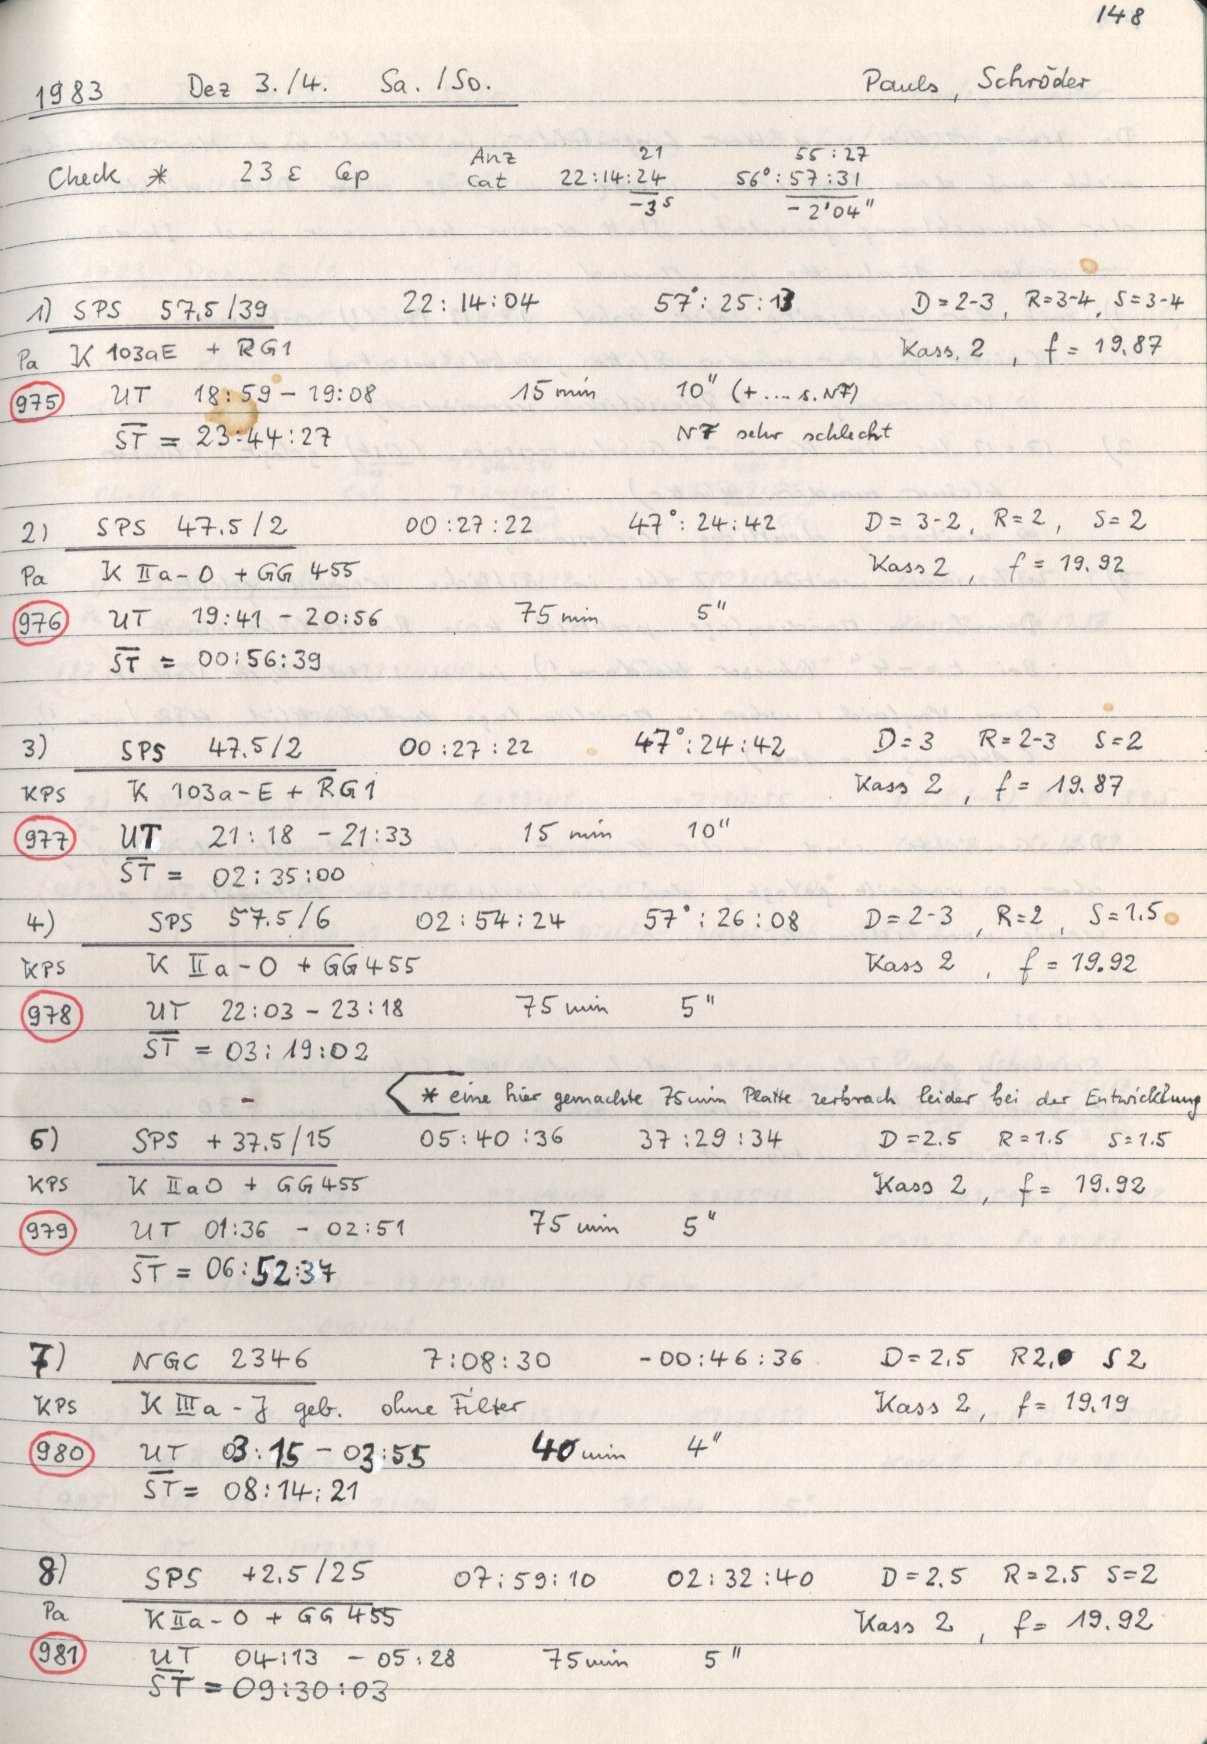 148
1983 Dez 3./4. Sa. / So. Pauls, Schröder
Anz 21 55:27
Check * 23 ε Cep Cat 22:14:24 56°:57:31
-3s -2'04"
1) SPS 57.5/39 22:14:04 57°:25:13 D=2-3, R=3-4, S=3-4
Pa K 103aE + RG1 Kass. 2, f = 19.87
975 UT 18:59 - 19:08 15 min 10" (+ .... s. NF)
ST = 23:44:27 NF sehr schlecht
2) SPS 47.5/2 00:27:22 47°:24:42 D= 3-2, R=2, S=2
Pa K IIa-O + GG 455 Kass 2, f = 19.92
976 UT 19:41 - 20:56 75 min 5"
ST = 00:56:39
3) SPS 47.5/2 00:27:22 47°:24:42 D=3 R=2-3 S=2
KPS K 103a-E + RG1 Kass 2, f = 19.87
977 UT 21:18 - 21:33 15 min 10"
ST = 02:35:00
4) SPS 57.5/6 02:54:24 57°:26:08 D=2-3, R=2, S=1.5
KPS K IIa-O + GG455 Kass 2, f = 19.92
978 UT 22:03 - 23:18 75 min 5"
ST = 03:19:02
* eine hier gemachte 75min Platte zerbrach leider bei der Entwicklung
6) SPS +37.5/15 05:40:36 37:29:34 D=2.5 R=1.5 S=1.5
KPS K IIaO + GG455 Kass 2, f = 19.92
979 UT 01:36 - 02:51 75 min 5"
ST = 06:52:37
7) NGC 2346 7:08:30 -00:46:36 D=2.5 R2, S2
KPS K IIIa-J geb. ohne Filter Kass 2, f= 19.19
980 UT 03:15 - 03:55 40 min 4"
ST = 08:14:21
8) SPS +2.5/25 07:59:10 02:32:40 D=2.5 R=2.5 S=2
Pa K IIa-O + GG 455 Kass 2, f= 19.92
981 UT 04:13 - 05:28 75min 5"
ST = 09:30:03